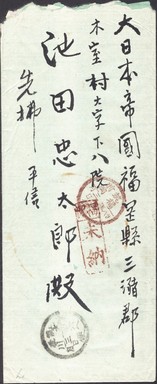 大日本帝國福岡縣三潴郡
木室村大字下八院
池田忠太郎殿
先拂
平信
未納